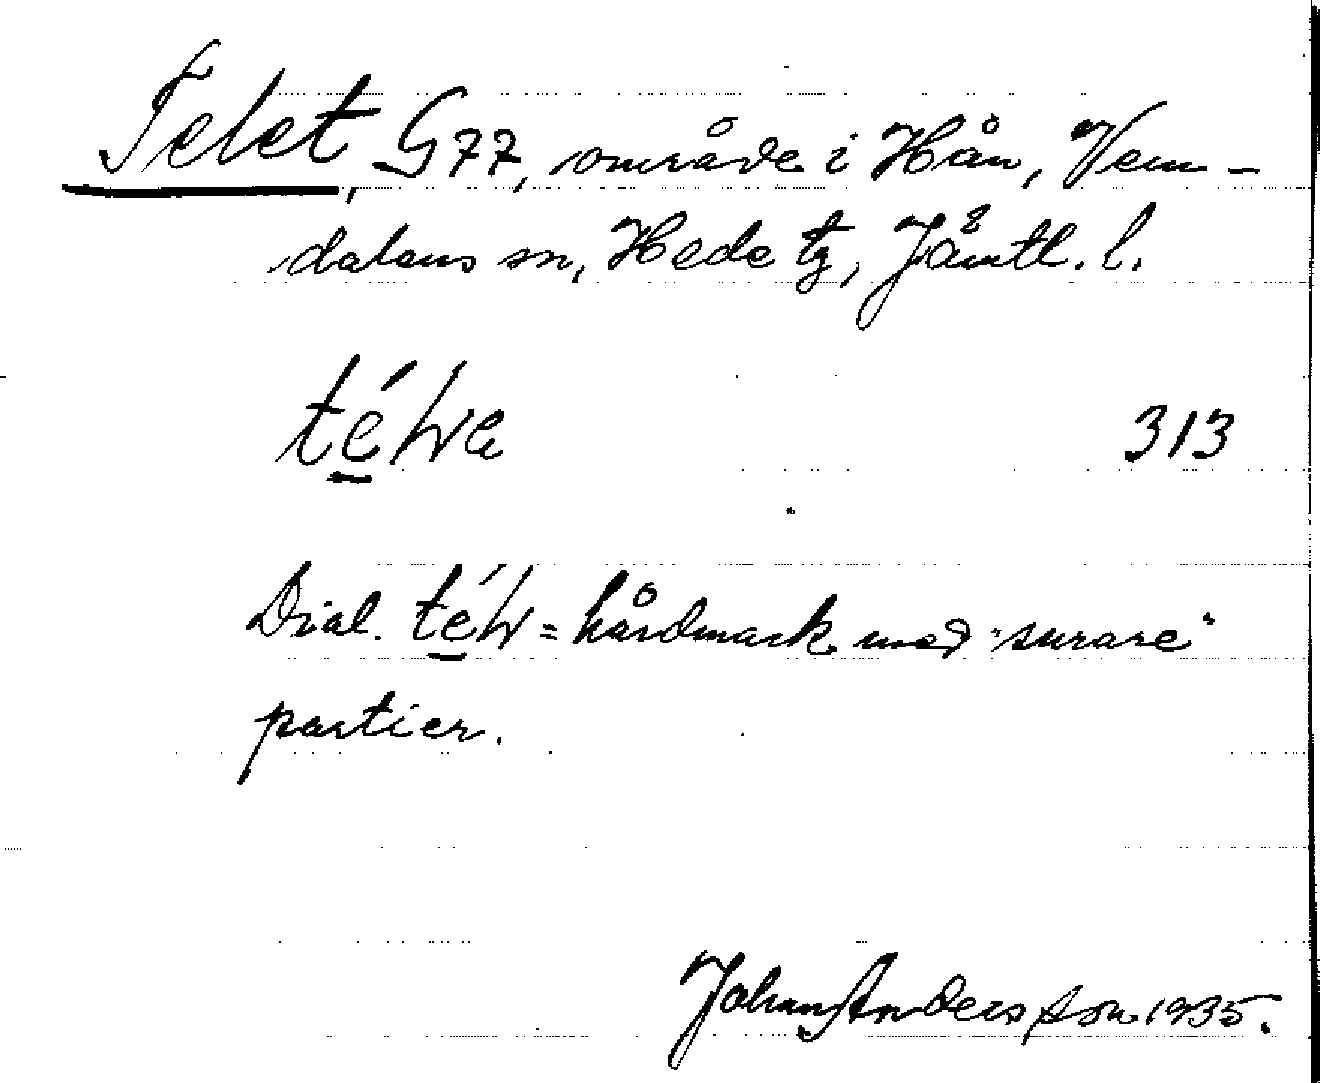 Telet, G77, område i Hån, Vem-
dalens sn, Hede tg, Jämtl. l.
313
Dial. = hårdmark med "surare"
partier.
Johan Andersson 1935.